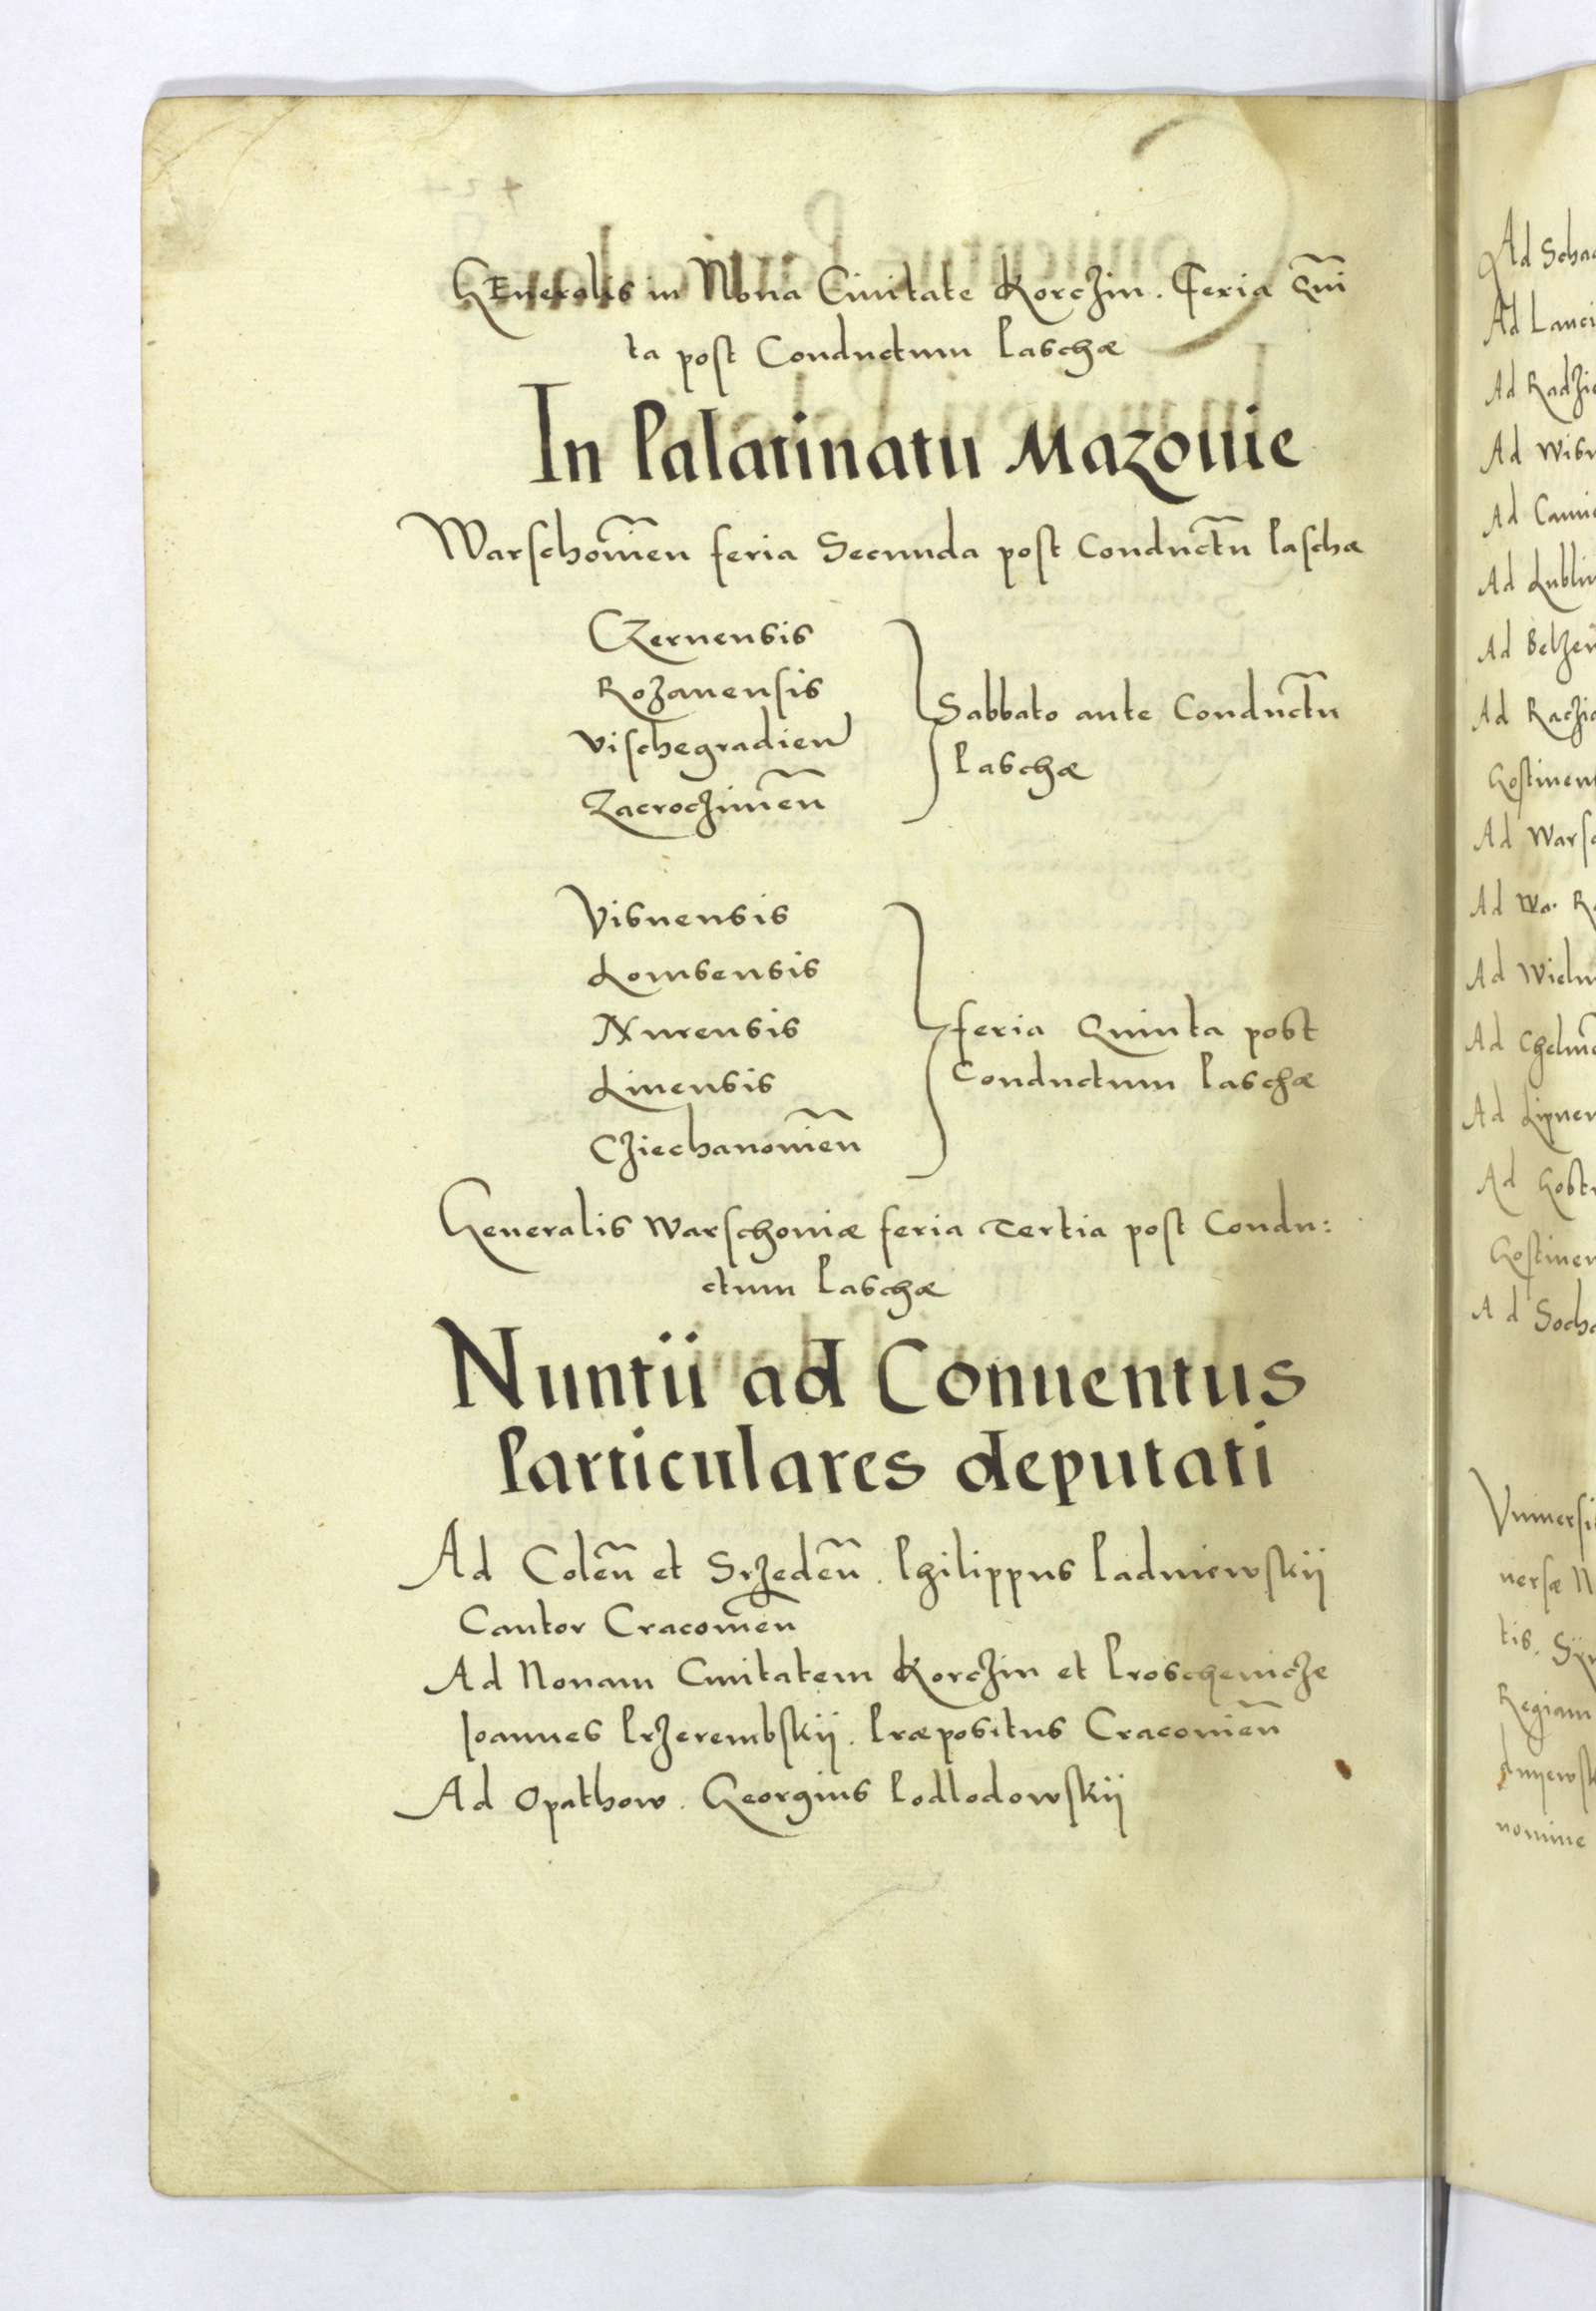 GEneralis in Noua Ciuitate Korczin. Feria Qui̅
ta post Conductum Paschæ
In Palatinatu Mazouie
Warschouien̅ feria Secunda post Conductu̅ Pascha
Czernensis
Rozanensis
Vischegradien
Zacroczimen̅
Sabbato ante Conductu̅
Paschæ
Visnensis
Lomsensis
Nurensis
Liuensis
Cziechanouien̅
feria Quinta post
Conductum Paschæ
Generalis Warschouiæ feria Tertia post Condu:
ctum Paschæ
Nuntii ad Conuentus
Particulares deputati
Ad Colen̅ et Srzeden̅. Philippus Padniewskij
Cantor Cracouien̅
Ad Nouam Ciuitatem Korczin et Proschenicze
Ioannes Przerembskij. Præpositus Cracouien̅
Ad Opathow. Georgius Podlodowskij
Ad Scha
Ad Lanci
Ad Radzie
Ad Wisn
Ad Camie
Ad Lublin
Ad Belzen
Ad Raczia
Gostinen
Ad Warsc
Ad Wa. Ra
Ad Wielu
Ad Chelme
Ad Lipnen
Ad Gost
Gostinen
Ad Socha
Vniuersi
uersæ N
tis. Syn
Regiam
dnyewsk
nomine